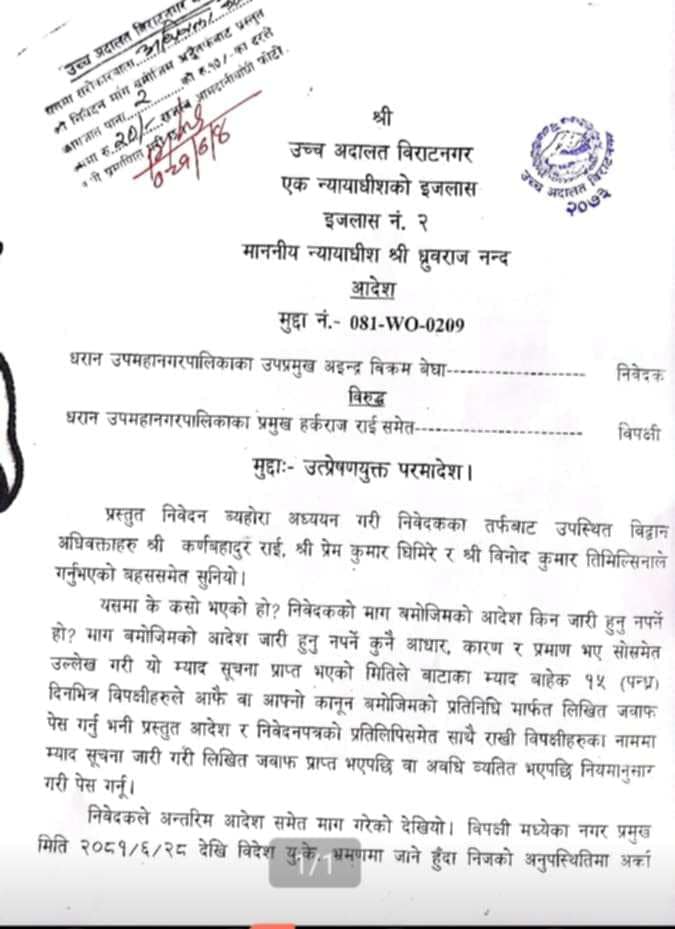 उच्च अदालत बिराटनगर
पाना 2 को रु.१०/- का दरले
रु.20/-
श्री
उच्च अदालत बिराटनगर
एक न्यायाधीशको इजलास
इजलास नं. २
माननीय न्यायाधीश श्री ध्रुवराज नन्द
आदेश
मुद्दा नं.- 081-WO-0209
उच्च अदालत बिराटनगर
२०७३
धरान उपमहानगरपालिकाका उपप्रमुख अइन्द्र विक्रम बेघा---------------------- निवेदक
विरुद्ध
धरान उपमहानगरपालिकाका प्रमुख हर्कराज राई समेत--------------------------- विपक्षी
मुद्दाः- उत्प्रेषणयुक्त परमादेश।
प्रस्तुत निवेदन व्यहोरा अध्ययन गरी निवेदकका तर्फबाट उपस्थित विद्वान
अधिवक्ताहरु श्री कर्णबहादुर राई, श्री प्रेम कुमार घिमिरे र श्री विनोद कुमार तिमिल्सिनाले
गर्नुभएको बहससमेत सुनियो।
यसमा के कसो भएको हो? निवेदकको माग बमोजिमको आदेश किन जारी हुनु नपर्ने
हो? माग बमोजिमको आदेश जारी हुनु नपर्ने कुनै आधार, कारण र प्रमाण भए सोसमेत
उल्लेख गरी यो म्याद सूचना प्राप्त भएको मितिले बाटाका म्याद बाहेक १५ (पन्ध्र)
दिनभित्र विपक्षीहरुले आफै वा आफ्नो कानून बमोजिमको प्रतिनिधि मार्फत लिखित जवाफ
पेस गर्नु भनी प्रस्तुत आदेश र निवेदनपत्रको प्रतिलिपिसमेत साथै राखी विपक्षीहरुका नाममा
म्याद सूचना जारी गरी लिखित जवाफ प्राप्त भएपछि वा अवधि व्यतित भएपछि नियमानुसार
गरी पेस गर्नू।
निवेदकले अन्तरिम आदेश समेत माग गरेको देखियो। विपक्षी मध्येका नगर प्रमुख
मिति २०८१/६/२८ देखि विदेश यु.के. भ्रमणमा जाने हुँदा निजको अनुपस्थितिमा अर्का
1/1